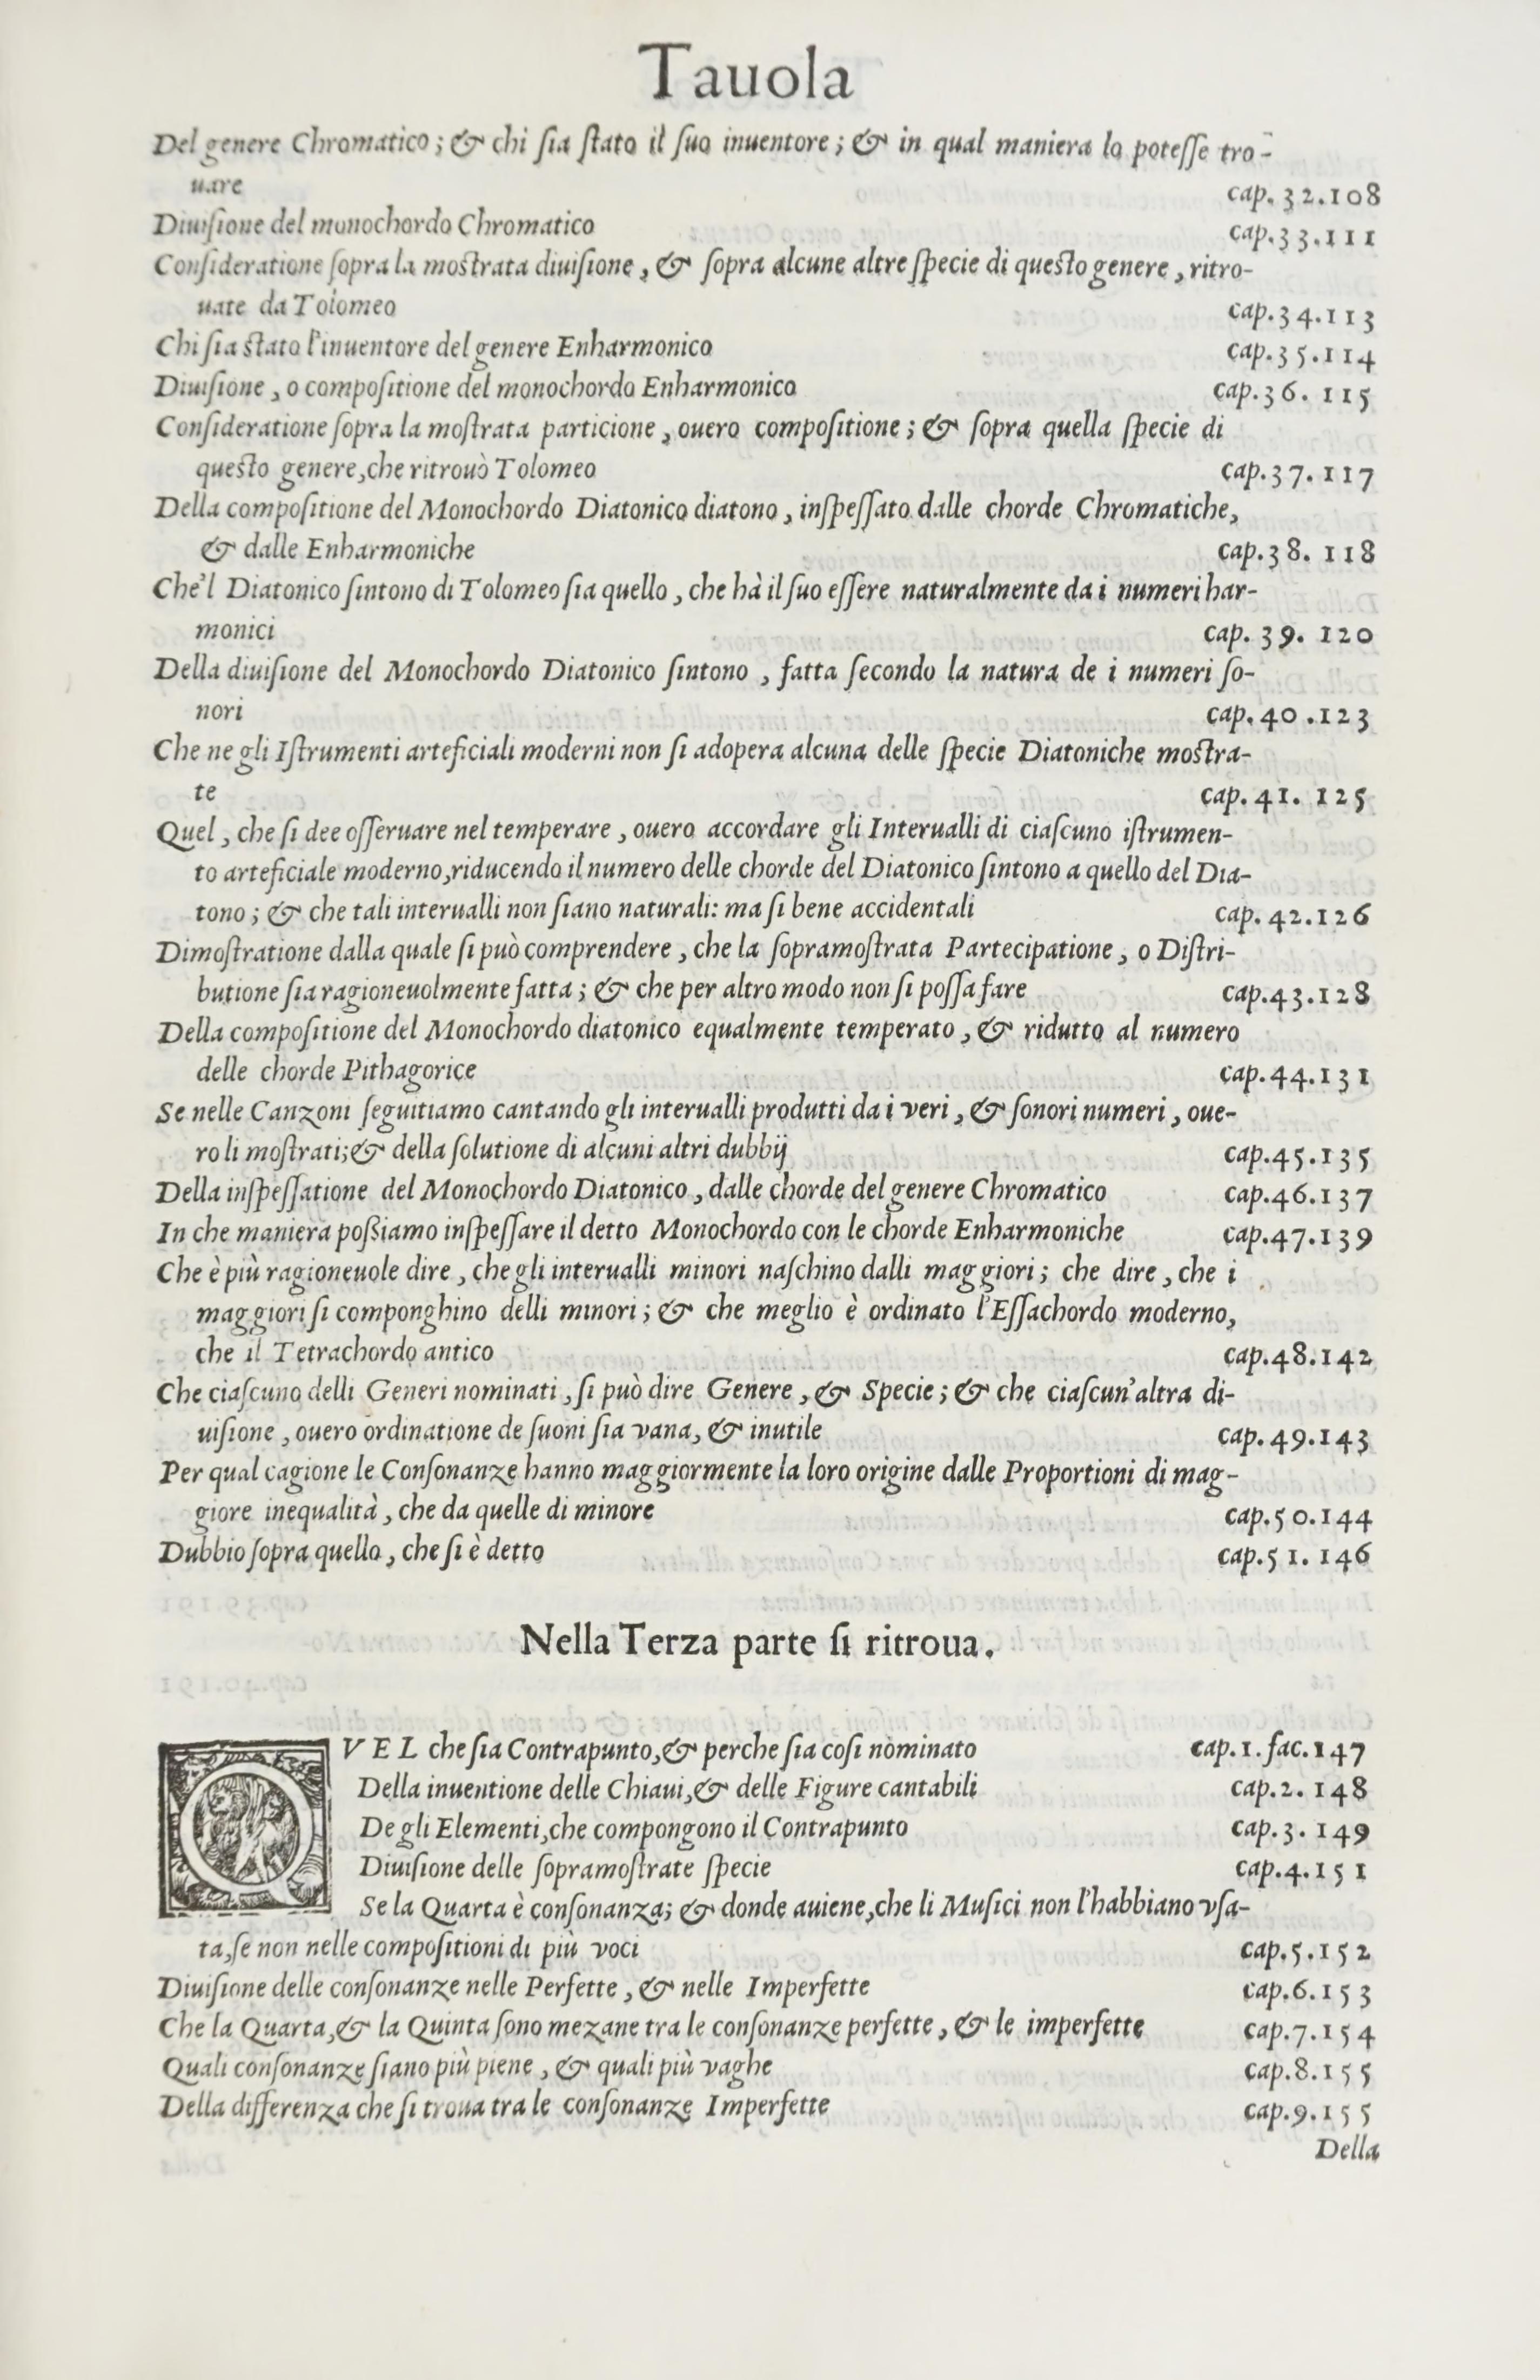 Tauola
Del genere Chromatico; & chi ſia ſtato il ſuo inuentore; & in qual maniera lo poteſſe tro-
uare cap. 32.108
Diuiſione del monochordo Chromatico cap.33.111
Conſideratione ſopra la moſtrata diuiſione, & ſopra alcune altre ſpecie di queſto genere, ritro-
uate da Tolomeo cap.34.113
Chi ſia ſtato l'inuentore del genere Enharmonico cap.35.114
Diuiſione, o compoſitione del monochordo Enharmonico cap.36. 115
Conſideratione ſopra la moſtrata particione, ouero compoſitione; & ſopra quella ſpecie di
queſto genere, che ritrouò Tolomeo cap.37.117
Della compoſitione del Monochordo Diatonico diatono, inſpeſſato dalle chorde Chromatiche,
& dalle Enharmoniche cap.38. 118
Che'l Diatonico ſintono di Tolomeo ſia quello, che hà il ſuo eſſere naturalmente da i numeri har-
monici cap. 39. 120
Della diuiſione del Monochordo Diatonico ſintono, fatta ſecondo la natura de i numeri ſo-
nori cap. 40.123
Che ne gli Iſtrumenti arteficiali moderni non ſi adopera alcuna delle ſpecie Diatoniche moſtra-
te cap. 41. 125
Quel, che ſi dee oſſeruare nel temperare, ouero accordare gli Interualli di ciaſcuno iſtrumen-
to arteficiale moderno, riducendo il numero delle chorde del Diatonico ſintono a quello del Dia-
tono; & che tali interualli non ſiano naturali: ma ſi bene accidentali cap. 42.126
Dimoſtratione dalla quale ſi può comprendere, che la ſopramoſtrata Partecipatione, o Diſtri-
butione ſia ragioneuolmente fatta; & che per altro modo non ſi poſſa fare cap.43.128
Della compoſitione del Monochordo diatonico equalmente temperato, & ridutto al numero
delle chorde Pithagorice cap.44.131
Se nelle Canzoni ſeguitiamo cantando gli interualli produtti da i veri, & ſonori numeri, oue-
ro li moſtrati; & della ſolutione di alcuni altri dubbij cap.45.135
Della inſpeſſatione del Monochordo Diatonico, dalle chorde del genere Chromatico cap.46.137
In che maniera poßiamo inſpeſſare il detto Monochordo con le chorde Enharmoniche cap.47.139
Che è più ragioneuole dire, che gli interualli minori naſchino dalli maggiori; che dire, che i
maggiori ſi componghino delli minori; & che meglio è ordinato l'Eſſachordo moderno,
che il Tetrachordo antico cap.48.142
Che ciaſcuno delli Generi nominati, ſi può dire Genere, & Specie; & che ciaſcun'altra di-
uiſione, ouero ordinatione de ſuoni ſia vana, & inutile cap. 49.143
Per qual cagione le Conſonanze hanno maggiormente la loro origine dalle Proportioni di mag-
giore inequalità, che da quelle di minore cap.50.144
Dubbio ſopra quello, che ſi è detto cap.51. 146
Nella Terza parte ſi ritroua.
QVEL che ſia Contrapunto, & perche ſia coſi nominato cap.1. fac.147
Della inuentione delle Chiaui, & delle Figure cantabili cap.2. 148
De gli Elementi, che compongono il Contrapunto cap.3. 149
Diuiſione delle ſopramoſtrate ſpecie cap.4.151
Se la Quarta è conſonanza; & donde auiene, che li Muſici non l'habbiano vſa-
ta, ſe non nelle compoſitioni di più voci cap.5.152
Diuiſione delle conſonanze nelle Perfette, & nelle Imperfette cap.6.153
Che la Quarta, & la Quinta ſono mezane tra le conſonanze perfette, & le imperfette cap.7.154
Quali conſonanze ſiano più piene, & quali più vaghe cap.8.155
Della differenza che ſi troua tra le conſonanze Imperfette cap.9.155
Della